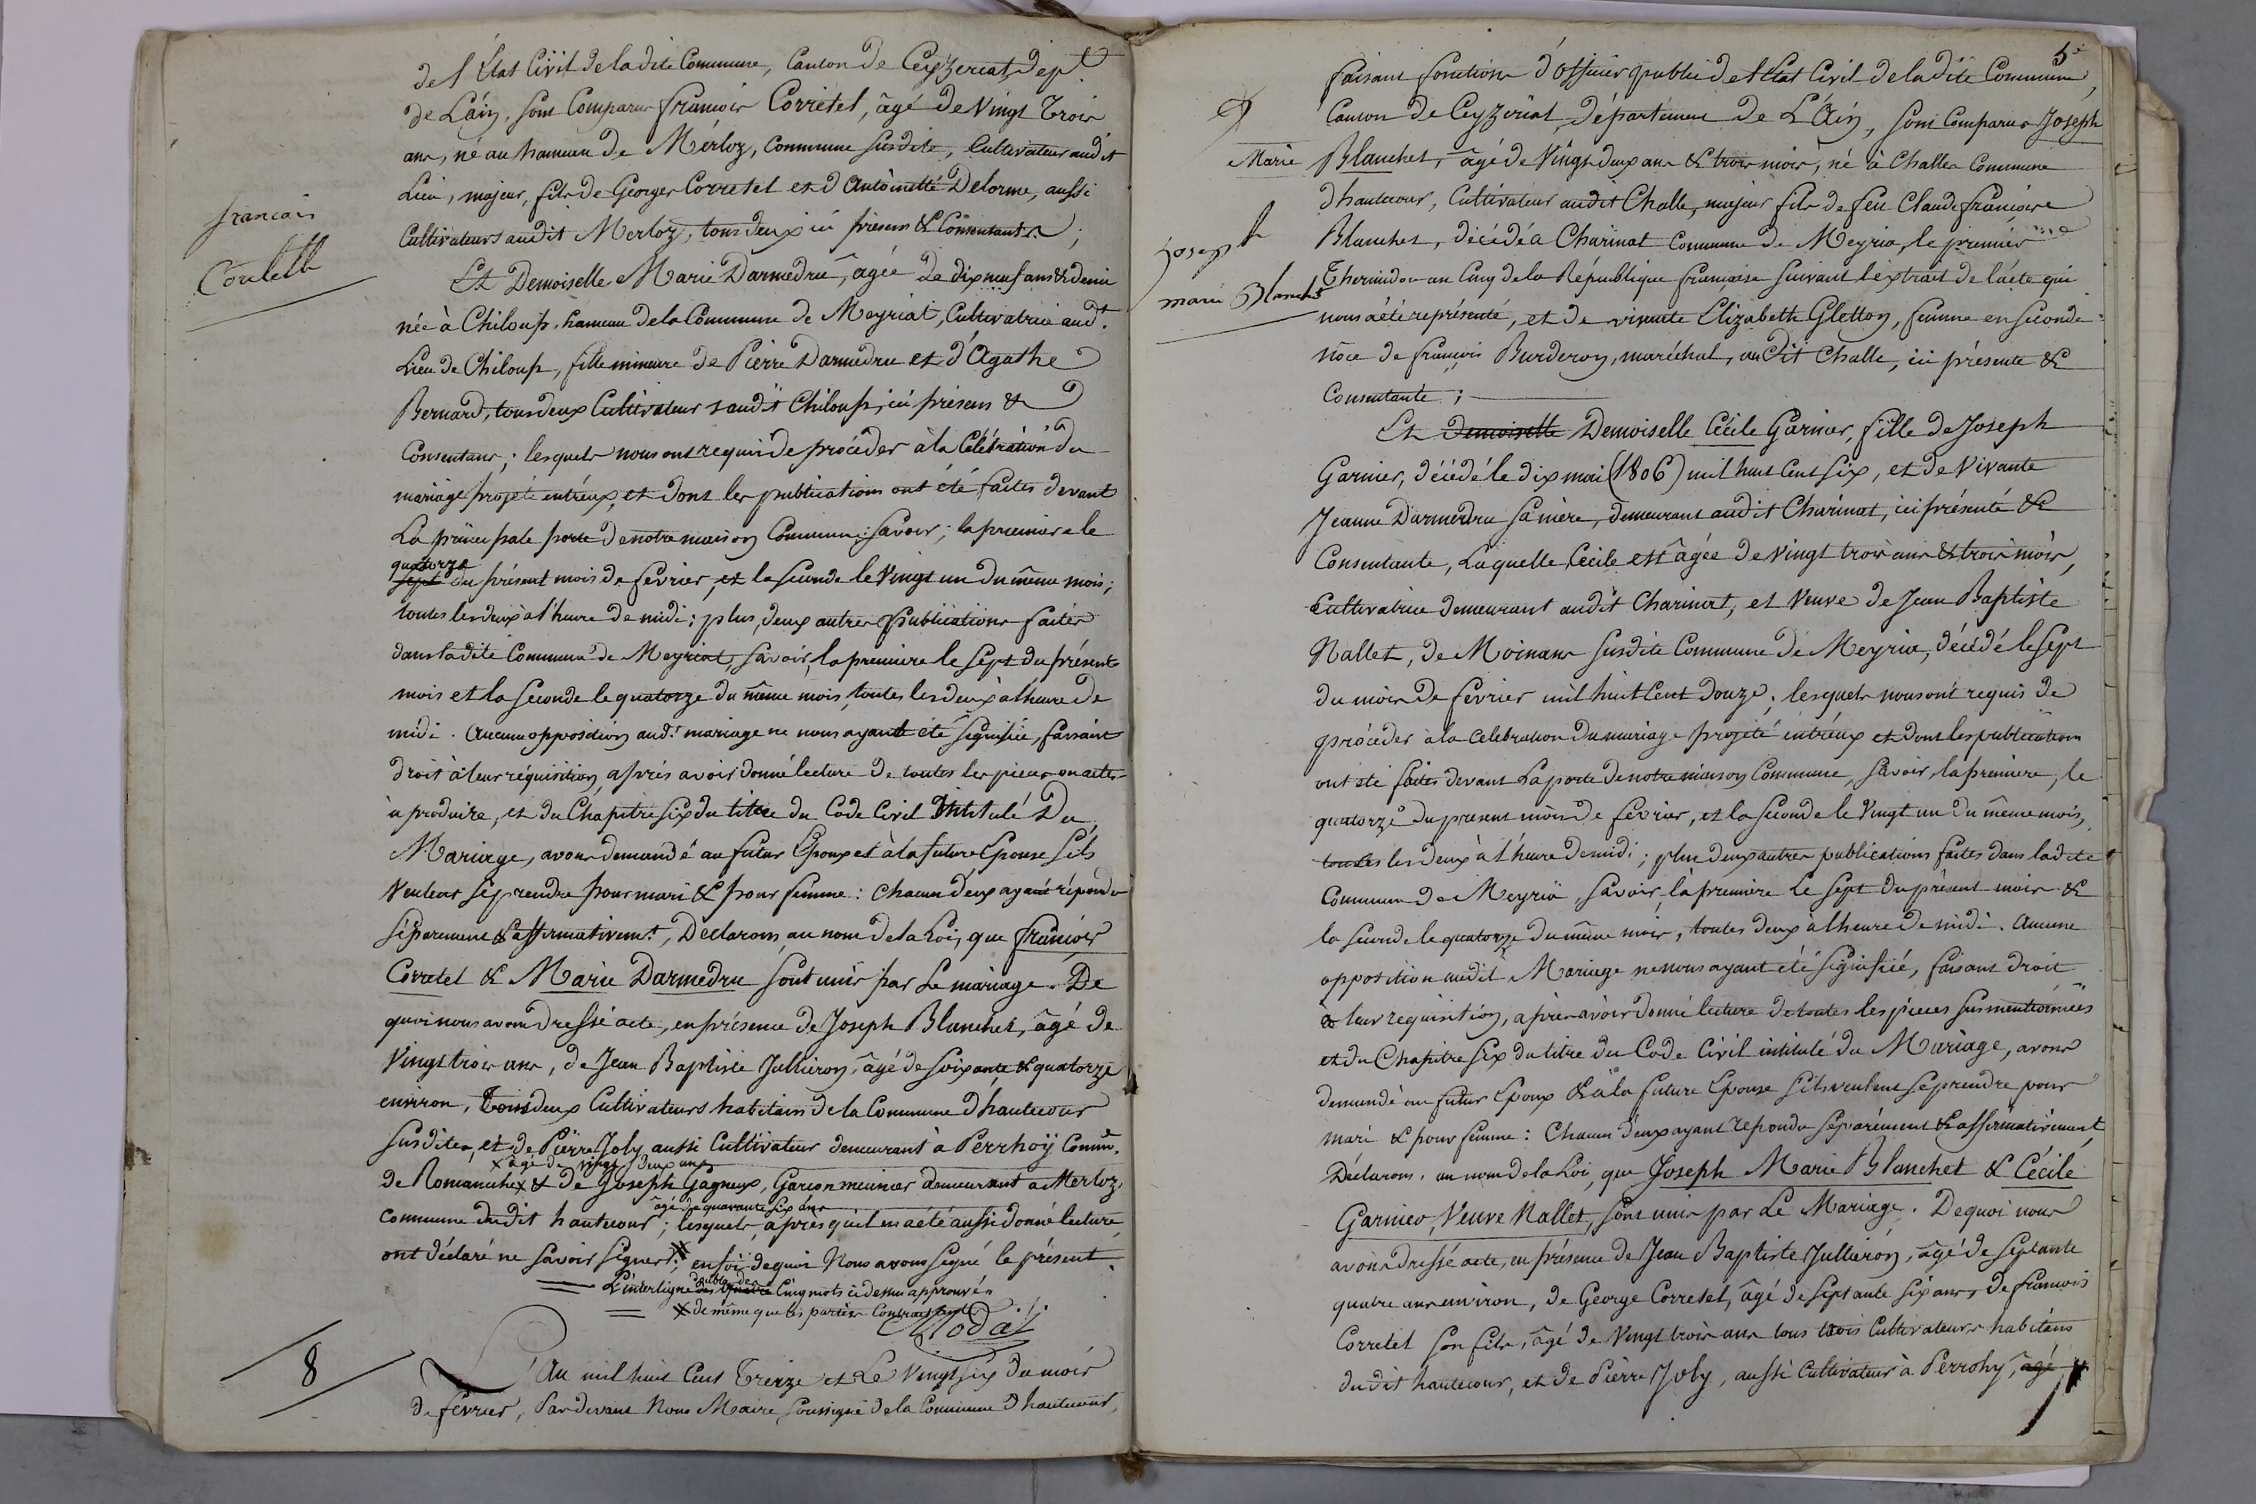 de l'État Civil de la dite Commune, Canton de Ceyzeriat, dept.
de L'áin, sont Comparus françois Corretet, âgé de Vingt Trois
ans, né au hameau de Mérloz, Commune susdite, Cultivateur audit
Lieu, majeur, fils de Georges Corretet et d'Antoinette Delorme, aussi
Cultivateurs audit Merloz, tous deux ici présens & Consentants ;
francois
Coretett
Et Demoiselle Marie Darmedru, âgée de dix neuf ans & demi
née à Chiloup, hameau de la Commune de Meyriat, Cultivatrice audt.
Lieu de Chiloup, fille mineure de Pierre Darmedru et d'Agathe
Bernard, tous deux Cultivateurs audit Chiloup, ici présens &
Consentans ; lesquels nous ont requis de procéder à la Célébration du
mariage projeté entr'eux, et dont les publications ont été faites devant
La principale porte de notre maison Commune ; savoir ; la premiere le
quatorze
sept du présent mois de février, et la seconde le Vingt un du même mois ;
toutes les deux à l'heure de midi ; plus, deux autres publications faites
dans la dite Commune de Meyriat, savoir, la premiere le sept du présent
mois et la seconde le quatorze du même mois, toutes les deux à l'heure de
midi. Aucune opposition audt. mariage ne nous ayant été signifiée, faisant
droit à leur réquisition, après avoir donné lecture de toutes les pieces ou actes
à produire, et du Chapitre six du titre du Code Civil intitulé Du
Mariage, avons demandé au futur Epoux et à la future Epouse s'ils
Veulent se prendre pour mari & pour femme : chacun d'eux ayant répondu
séparement & affirmativemt., Déclarons, au nom de la Loi, que françois
Corretet & Marie Darmedru sont unis par Le mariage. De
quoi nous avons dressé acte, en présence de Joseph Blanchet, âgé de
Vingt trois ans, de Jean Baptiste Jullieron, âgé de soixante & quatorze
environ, Tous deux Cultivateurs habitans de la Commune d'hautecour
susdite, et de Pierre Joly aussi Cultivateur demeurant à Perrhoÿ Commu.
x âgé de vingt deux ans
de Romanêche x & de Joseph Gagneux, Garçon meunier demeurant à Merloz,
âgé de quarante six ans
commune dudit hautecour ; lesquels, après qu'il en a été aussi donné lecture,
ont déclaré ne savoir signer ; en foi de quoi Nous avons signé le présent.
L'interligne des quatre Cinq mots ci dessus approuvés
x de même que les parties Contractantes
Moda
8
L'An mil huit Cent Treize et Le Vingt six du mois
de février, Pardevant Nous Maire soussigné de la Commune d'hautecour,
5e
faisant fonctions d'officier public de l'Etat Civil de la dite Commune,
Canton de Ceyzériat, département de L'Ain, sont Comparus Joseph
Marie Blanchet, âgé de Vingt deux ans & trois mois, né à Challes Commune
d'hautecour, Cultivateur audit Challe, majeur fils de feu Claude françois
Joseph
marie Blanchet
Blanchet, décédé à Charinat Commune de Meyria, le premier
Thermidor an Cinq de la République française suivant l'extrait de l'acte qui
nous a été représenté, et de vivante Elizabeth Gletton, femme en seconde
nôce de françois Burderon, maréchal, audit Challe, ici présente &
Consentante ;
Et Demoiselle Demoiselle Cécile Garnier, fille de Joseph
Garnier, décédé le dix mai (1806) mil huit Cent six, et de Vivante
Jeanne Darmedru sa mère, demeurant audit Charinat, ici présente &
Consentante, Laquelle Cécile est âgée de vingt trois ans & trois mois,
Cultivatrice demeurant audit Charinat, et Veuve de Jean Baptiste
Nallet, de Moinans susdite Commune de Meyria, décédé le sept
du mois de février mil huit Cent douze ; lesquels nous ont requis de
procéder à la célébration du mariage projeté entr'eux et dont les publications
ont été faites devant la porte de notre maison Commune, savoir, la premiere, le
quatorze du present mois de février, et la seconde le Vingt un du même mois,
toutes les deux à l'heure de midi ; plus deux autres publications faites dans la dite
Commune de Meyria, savoir, la premiere le sept du présent mois &
la seconde le quatorze du même mois, toutes deux à l'heure de midi. Aucune
opposition audit Mariage ne nous ayant été signifiée, faisant droit
à leur requisition, après avoir donné lecture de toutes les pieces susmentionnées
et du Chapitre six du titre du Code Civil intitulé du Mariage, avons
demandé au futur Epoux & à la future Epouse s'ils veulent se prendre pour
mari & pour femme : Chacun d'eux ayant repondu séparément & affirmativement,
Déclarons, au nom de la Loi, que Joseph Marie Blanchet & Cécile
Garnier, Veuve Nallet, sont unis par Le Mariage. De quoi nous
avons dressé acte, en présence de Jean Baptiste Jullieron, âgé de septante
quatre ans environ, de George Corretet, âgé de septante six ans, de francois
Corretet son fils, âgé de Vingt trois ans tous trois Cultivateurs habitans
dudit hautecour, et de Pierre Joly, aussi Cultivateur à Perrohy, âgé